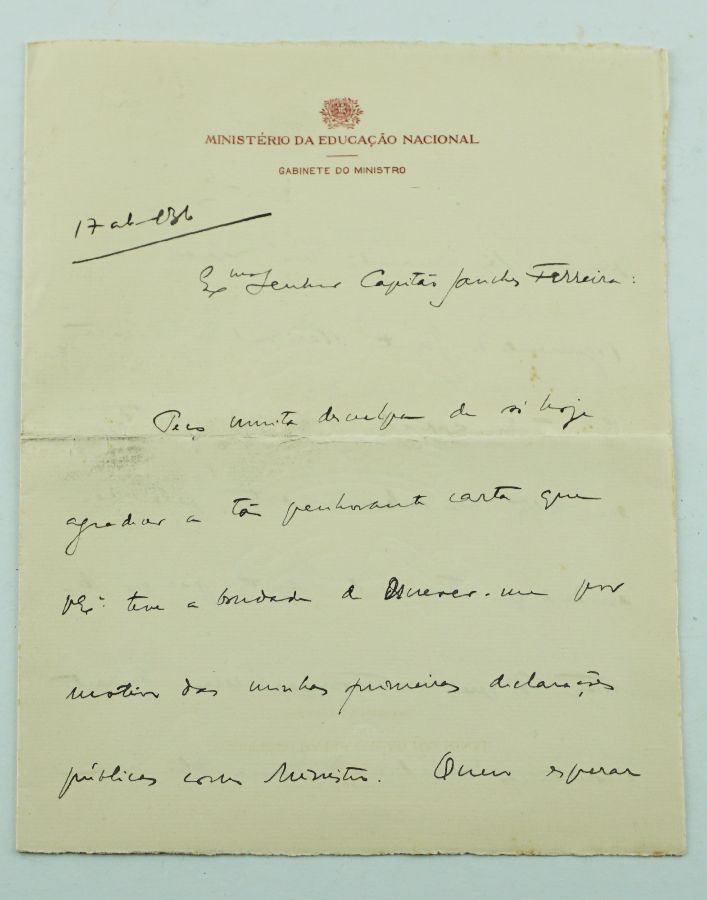 MINISTÉRIO DA EDUCAÇÃO NACIONAL
GABINETE DO MINISTRO
17 ab. 936
Exmo Senhor Capitão Sanches Ferreira:
Peço muita desculpa de só hoje
agradecer a tão penhorante carta que
V.Exª. teve a bondade de escrever-me por
motivo das minhas primeiras declarações
públicas como Ministro. Quero esperar